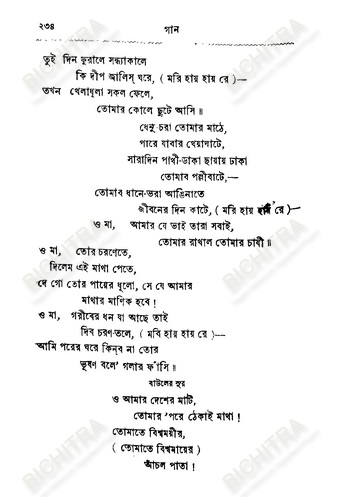 ২৩৪
গান
তুই দিন ফুরালে সন্ধ্যাকালে
কি দীপ জালিস্ ঘরে, ( মরি হায় হায় রে )—
তখন খেলাধূলা সকল ফেলে,
তোমার কোলে ছুটে আসি॥
ধেনু-চরা তোমার মাঠে,
পারে যাবার খেয়াঘাটে,
সারাদিন পাখী-ডাকা ছায়ায় ঢাকা
তোমাব পল্লীবাটে,—
তোমাব ধানে-ভরা আঙিনাতে
জীবনের দিন কাটে, ( মরি হায় হায় রে )—
ও মা, আমার যে ভাই তারা সবাই,
তোমার রাখাল তোমার চাষী॥
ও মা, তোর চরণেতে,
দিলেম এই মাথা পেতে,
দে গো তোর পায়ের ধূলো, সে যে আমার
মাথার মাণিক হবে!
ও মা, গরীবের ধন যা আছে তাই
দিব চরণ-তলে, ( মবি হায় হায় রে )—
আমি পরের ঘরে কিন্‌ব না তোর
ভূষণ বলে' গলার ফাঁসি॥
বাউলের সুর
ও আমার দেশের মাটি,
তোমার 'পরে ঠেকাই মাথা!
তোমাতে বিশ্বময়ীর,
( তোমাতে বিশ্বমায়ের )
আঁচল পাতা!
BICHITRA